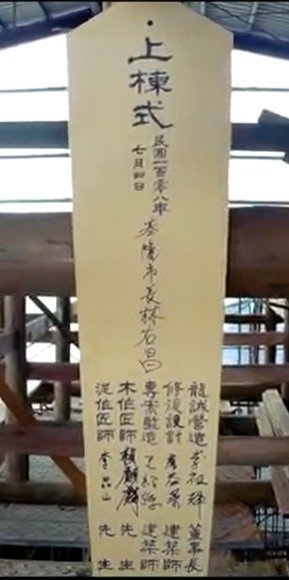 上棟式
民國一百零八年
七月四日
基隆市長林右昌
龍誠營造 李 董事長
修復設計 建築師
專案監造 建築師
木作匠師 先生
泥作匠師 李 山 先生